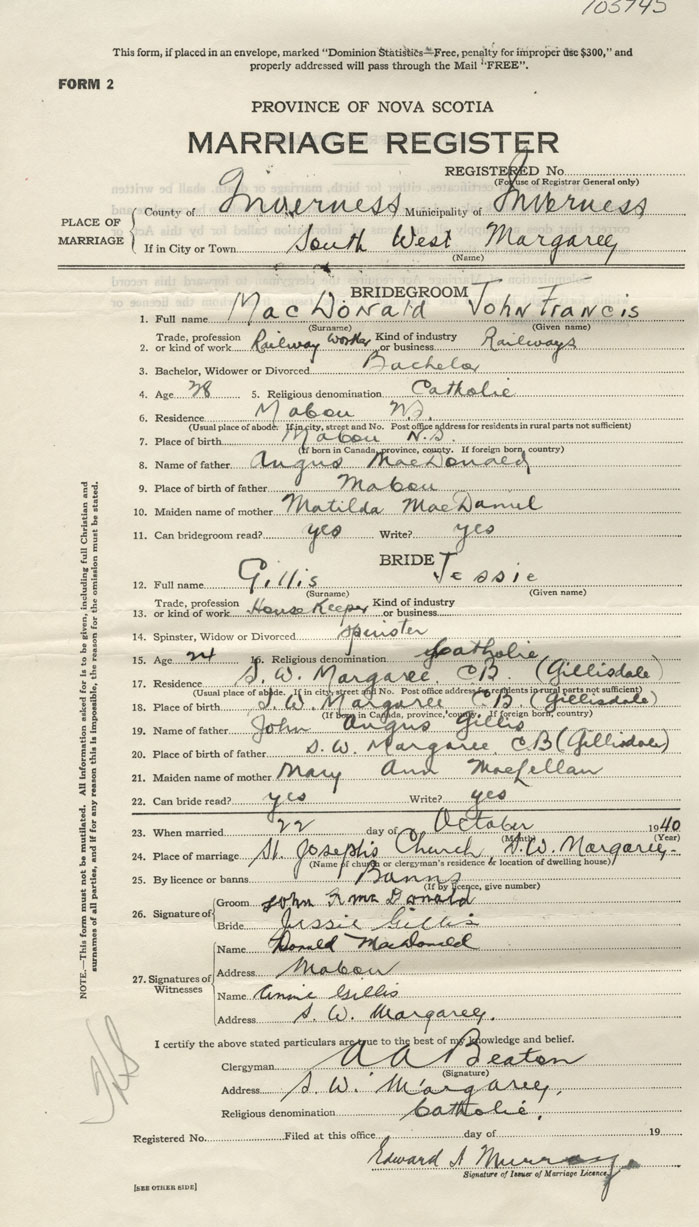 103745
This form, if placed in an envelope, marked "Dominion Statistics—Free, penalty for improper use $300," and
properly addressed will pass through the Mail "FREE".
FORM 2
PROVINCE OF NOVA SCOTIA
MARRIAGE REGISTER
REGISTERED No.
(For use of Registrar General only)
PLACE OF MARRIAGE
County of Inverness Municipality of Inverness
If in City or Town South West Margaree
(Name)
BRIDEGROOM
1. Full name MacDonald John Francis
(Surname) (Given name)
2. Trade, profession or kind of work Railway Worker Kind of industry or business Railways
3. Bachelor, Widower or Divorced Bachelor
4. Age 28 5. Religious denomination Catholic
6. Residence Mabou N.S.
(Usual place of abode. If in city, street and No. Post office address for residents in rural parts not sufficient)
7. Place of birth Mabou N.S.
(If born in Canada, province, county. If foreign born, country)
8. Name of father Angus MacDonald
9. Place of birth of father Mabou
10. Maiden name of mother Matilda MacDaniel
11. Can bridegroom read? yes Write? yes
BRIDE
12. Full name Gillis Jessie
(Surname) (Given name)
13. Trade, profession or kind of work House Keeper Kind of industry or business
14. Spinster, Widow or Divorced spinster
15. Age 24 16. Religious denomination Catholic
17. Residence S. W. Margaree C.B. (Gillisdale)
(Usual place of abode. If in city, street and No. Post office address for residents in rural parts not sufficient)
18. Place of birth S. W. Margaree C.B. (Gillisdale)
(If born in Canada, province, county. If foreign born, country)
19. Name of father John Angus Gillis
20. Place of birth of father S. W. Margaree C B (Gillisdale)
21. Maiden name of mother Mary Ann MacLellan
22. Can bride read? yes Write? yes
23. When married 22 day of October 1940
(Month) (Year)
24. Place of marriage St. Joseph's Church, S. W. Margaree
(Name of church or clergyman's residence & location of dwelling house)
25. By licence or banns Banns
(If by licence, give number)
26. Signature of
Groom John F McDonald
Bride Jessie Gillis
27. Signatures of Witnesses
Name Donald MacDonald
Address Mabou
Name Annie Gillis
Address S. W. Margaree.
I certify the above stated particulars are true to the best of my knowledge and belief.
Clergyman A A Beaton
(Signature)
Address S. W. Margaree.
Religious denomination Catholic.
Registered No. Filed at this office day of 19
Edward A Murray
Signature of Issuer of Marriage Licence
[SEE OTHER SIDE]
NOTE.—This form must not be mutilated. All information asked for is to be given, including full Christian and
surnames of all parties, and if for any reason this is impossible, the reason for the omission must be stated.